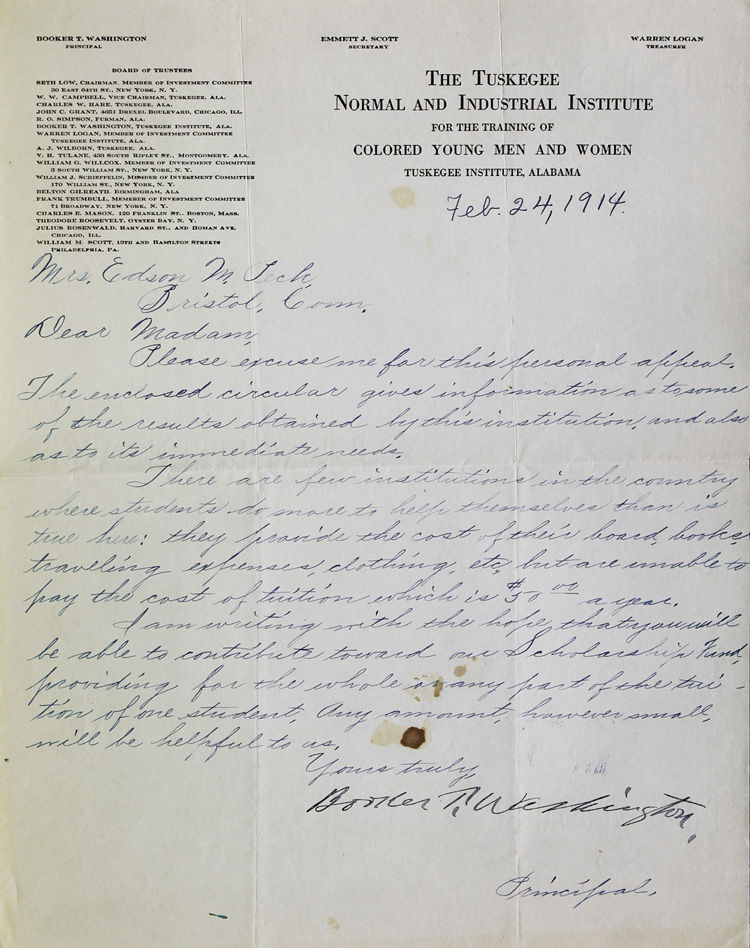 BOOKER T. WASHINGTON
PRINCIPAL
EMMETT J. SCOTT
SECRETARY
WARREN LOGAN
TREASURER
BOARD OF TRUSTEES
SETH LOW, CHAIRMAN, MEMBER OF INVESTMENT COMMITTEE
30 EAST 64TH ST., NEW YORK, N. Y.
W. W. CAMPBELL, VICE CHAIRMAN, TUSKEGEE, ALA.
CHARLES W. HARE, TUSKEGEE, ALA.
JOHN C. GRANT, 4051 DREXEL BOULEVARD, CHICAGO, ILL.
R. O. SIMPSON, FURMAN, ALA.
BOOKER T. WASHINGTON, TUSKEGEE INSTITUTE, ALA.
WARREN LOGAN, MEMBER OF INVESTMENT COMMITTEE
TUSKEGEE INSTITUTE, ALA.
A. J. WILBORN, TUSKEGEE, ALA.
V. H. TULANE, 433 SOUTH RIPLEY ST., MONTGOMERY, ALA.
WILLIAM G. WILLCOX, MEMBER OF INVESTMENT COMMITTEE
3 SOUTH WILLIAM ST., NEW YORK, N. Y.
WILLIAM J. SCHIEFFELIN, MEMBER OF INVESTMENT COMMITTEE
170 WILLIAM ST., NEW YORK, N. Y.
BELTON GILREATH, BIRMINGHAM, ALA
FRANK TRUMBULL, MEMEBER OF INVESTMENT COMMITTEE
71 BROADWAY, NEW YORK, N. Y.
CHARLES E. MASON, 120 FRANKLIN ST., BOSTON, MASS.
THEODORE ROOSEVELT, OYSTER BAY, N. Y.
JULIUS ROSENWALD, HARVARD ST., AND HOMAN AVE.
CHICAGO, ILL.
WILLIAM M. SCOTT, 19TH AND HAMILTON STREETS
PHILADELPHIA, PA.
THE TUSKEGEE
NORMAL AND INDUSTRIAL INSTITUTE
FOR THE TRAINING OF
COLORED YOUNG MEN AND WOMEN
TUSKEGEE INSTITUTE, ALABAMA
Feb. 24, 1914.
Mrs. Edson M. Peck,
Bristol, Conn.
Dear Madam,
Please excuse me for this personal appeal.
The enclosed circular gives information as to some
of the results obtained by this institution, and also
as to its immediate needs.
There are few institutions in the country
where students do more to help themselves than is
true here: they provide the cost of their board, books,
traveling expenses, clothing, etc, but are unable to
pay the cost of tuition which is $50 00 a year.
I am writing with the hope that you will
be able to contribute toward our Scholarship Fund,
providing for the whole or any part of the tui-
tion of one student. Any amount, however small,
will be helpful to us.
Yours truly,
Booker T. Washington,
Principal.